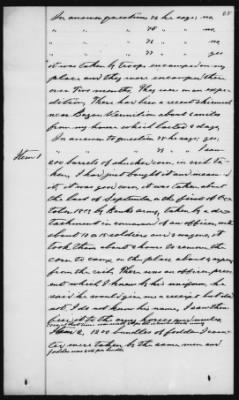 In answer question 74 he says no
" " " 75 " " no
" " " 76 " " no
" " " 77 " " yes
it was taken by troops encamped on my
place and they were encamped there
over two months. They were on expe-
dition. There had been a recent skirmish
near Bayou Vermilion about 2 miles
from my house which lasted 2 days.
In answer to question 78 he says yes
" " " 79 "
Item 1
200 barrels of corn
ken, I had just bought it and measured
it, it was good corn, it was taken about
the last of September or the first of Oc-
tober 1863 by Banks army, taken by a de-
tachment in command of an officer, with
about 12 or 15 soldiers and 3 wagons, it
took them about 2 hours to remove the
corn to camp on the place about 4 acres
from the crib. There was an officer pres-
ent which I knew by his uniform, he
said he would give me a receipt but did
not. I do not know his name, I saw them
feed it to the army horses and mules
Item 2, 1200 bundles of fodder
were taken by the same men and